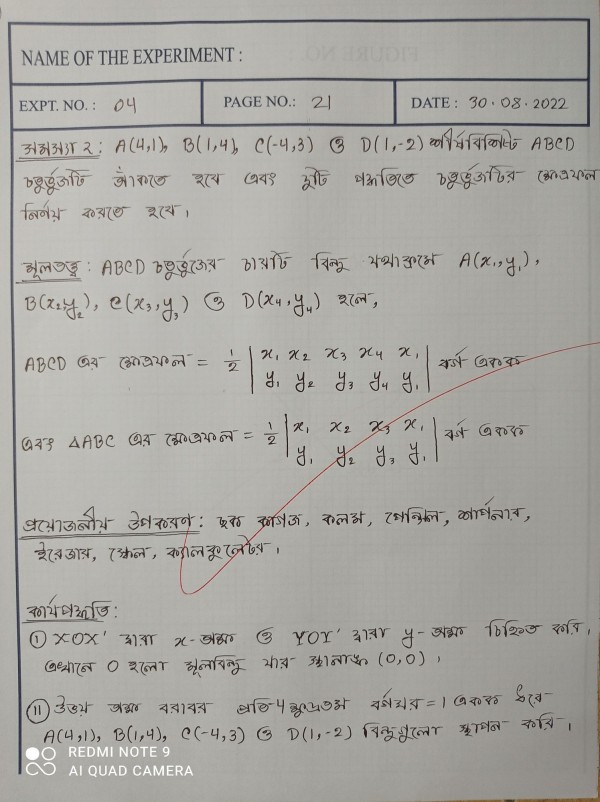 NAME OF THE EXPERIMENT :
EXPT. NO. : 04 PAGE NO.: 21 DATE : 30.08.2022
সমস্যা ২ : A(4,1), B(1,4), C(-4,3) ও D(1,-2) শীর্ষবিশিষ্ট ABCD
চতুর্ভুজটি আঁকতে হবে এবং দুটি পদ্ধতিতে চতুর্ভুজটির ক্ষেত্রফল
নির্ণয় করতে হবে।
মূলতত্ত্ব : ABCD চতুর্ভুজের চারটি বিন্দু যথাক্রমে A(x₁,y₁),
B(x₂,y₂), C(x₃,y₃) ও D(x₄,y₄) হলে,
ABCD এর ক্ষেত্রফল = ½ | x₁ x₂ x₃ x₄ x₁ | বর্গ একক
y₁ y₂ y₃ y₄ y₁
এবং ΔABC এর ক্ষেত্রফল = ½ | x₁ x₂ x₃ x₁ | বর্গ একক
y₁ y₂ y₃ y₁
প্রয়োজনীয় উপকরণ : ছক কাগজ, কলম, পেন্সিল, শার্পনার,
ইরেজার, স্কেল, ক্যালকুলেটর।
কার্যপদ্ধতি :
(i) XOX' দ্বারা x-অক্ষ ও YOY' দ্বারা y-অক্ষ চিহ্নিত করি,
এখানে O হলো মূলবিন্দু যার স্থানাঙ্ক (0,0)।
(ii) উভয় অক্ষ বরাবর প্রতি 4 ক্ষুদ্রতম বর্গঘর = 1 একক ধরে
A(4,1), B(1,4), C(-4,3) ও D(1,-2) বিন্দুগুলো স্থাপন করি।
REDMI NOTE 9
AI QUAD CAMERA